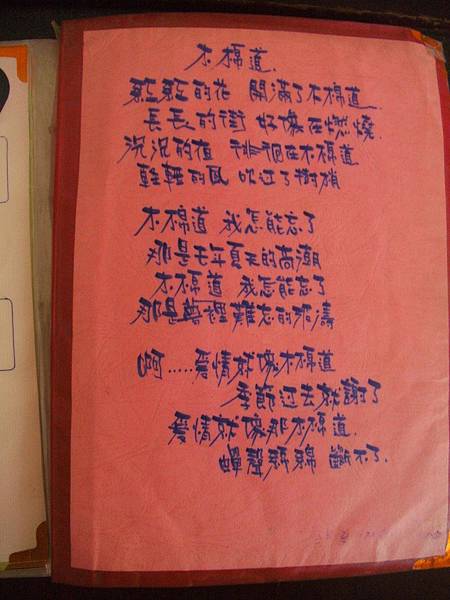 木棉道.
紅紅的花 開滿了木棉道
長長的街 好像在燃燒
沉沉的夜 徘徊在木棉道
輕輕的風 吹过了樹梢
木棉道 我怎能忘了
那是去年夏天的高潮
木棉道 我怎能忘了
那是夢裡難忘的波濤
啊.....愛情就像木棉道
季節过去就謝了
愛情就像那木棉道.
蟬聲綿綿 斷不了.